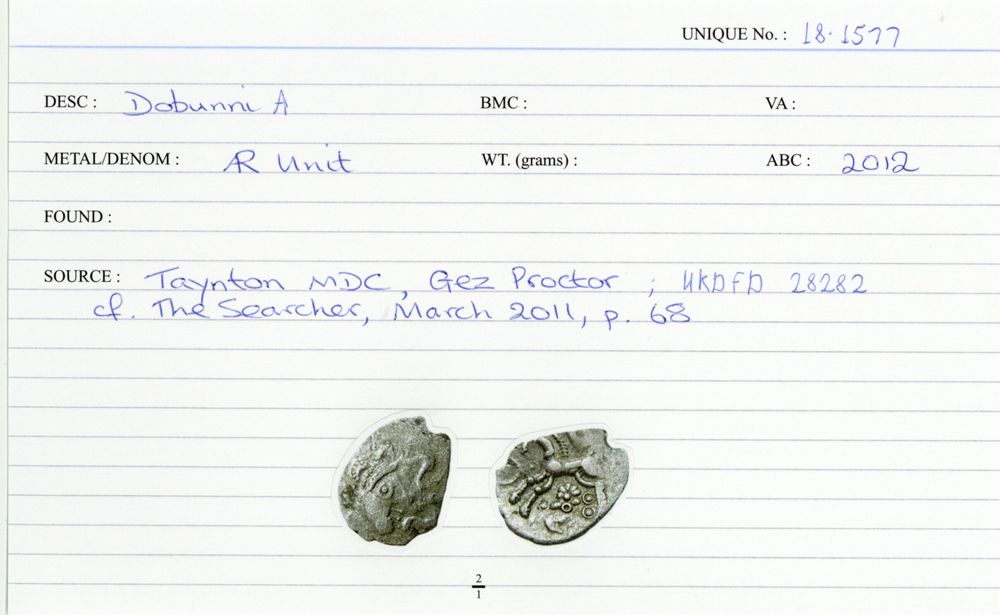 UNIQUE No. : 18.1577
DESC : Dobunni A BMC : VA :
METAL/DENOM : AR Unit WT. (grams) : ABC : 2012
FOUND :
SOURCE : Taynton MDC, Gez Proctor ; UKDFD 28282
cf. The Searcher, March 2011, p. 68
2
1